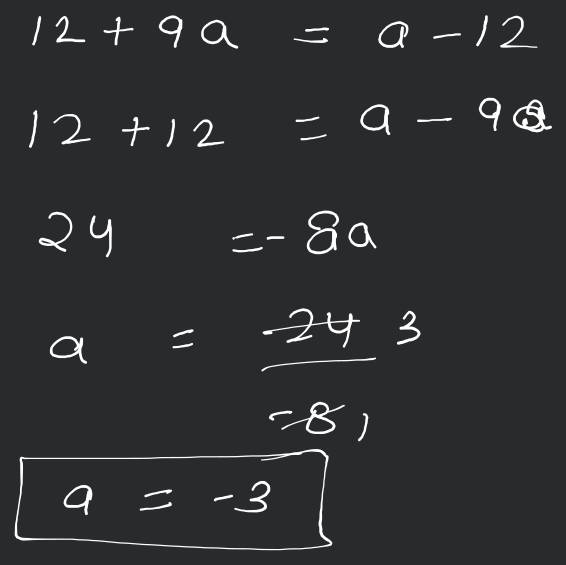 12 + 9a = a - 12
12 + 12 = a - 9a
24 = - 8a
a = -24 3
-8 1
a = -3